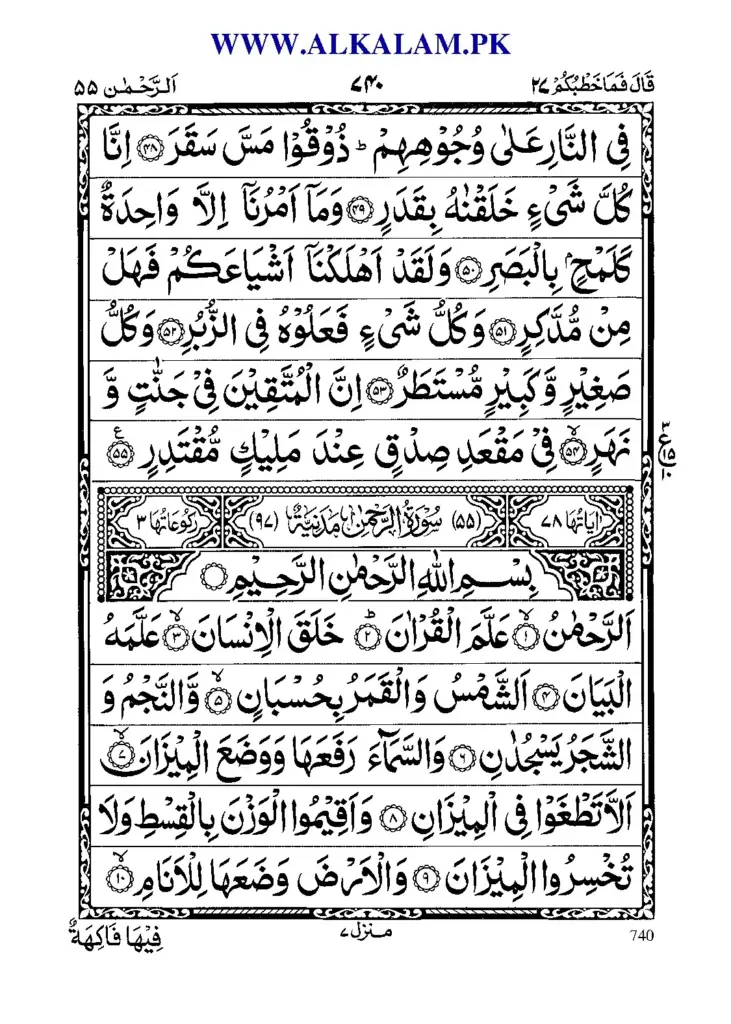 WWW.ALKALAM.PK
قَالَ فَمَا خَطْبُكُمْ ٢٧
٧٤٠
اَلرَّحْمٰن ٥٥
فِی النَّارِ عَلٰی وُجُوْهِهِمْ ؕ ذُوْقُوْا مَسَّ سَقَرَ ﴿۴۸﴾ اِنَّا
كُلَّ شَیْءٍ خَلَقْنٰهُ بِقَدَرٍ ﴿۴۹﴾ وَمَاۤ اَمْرُنَاۤ اِلَّا وَاحِدَةٌ
كَلَمْحٍۭ بِالْبَصَرِ ﴿۵۰﴾ وَلَقَدْ اَهْلَكْنَاۤ اَشْیَاعَكُمْ فَهَلْ
مِنْ مُّدَّكِرٍ ﴿۵۱﴾ وَكُلُّ شَیْءٍ فَعَلُوْهُ فِی الزُّبُرِ ﴿۵۲﴾ وَكُلُّ
صَغِیْرٍ وَّكَبِیْرٍ مُّسْتَطَرٌ ﴿۵۳﴾ اِنَّ الْمُتَّقِیْنَ فِیْ جَنّٰتٍ وَّ
نَهَرٍ ﴿ۙ۵۴﴾ فِیْ مَقْعَدِ صِدْقٍ عِنْدَ مَلِیْكٍ مُّقْتَدِرٍ ﴿۵۵﴾ ع
٣ ع ١٥ ١٠
اٰیَاتُهَا ٧٨ (٥٥) سُوْرَةُ الرَّحْمٰنِ مَدَنِیَّةٌ (٩٧) رُكُوْعَاتُهَا ٣
بِسْمِ اللّٰهِ الرَّحْمٰنِ الرَّحِیْمِ
اَلرَّحْمٰنُ ﴿ۙ۱﴾ عَلَّمَ الْقُرْاٰنَ ﴿ؕ۲﴾ خَلَقَ الْاِنْسَانَ ﴿ۙ۳﴾ عَلَّمَهُ
الْبَیَانَ ﴿۴﴾ اَلشَّمْسُ وَالْقَمَرُ بِحُسْبَانٍ ﴿ۙ۵﴾ وَّالنَّجْمُ وَ
الشَّجَرُ یَسْجُدٰنِ ﴿۶﴾ وَالسَّمَآءَ رَفَعَهَا وَوَضَعَ الْمِیْزَانَ ﴿ۙ۷﴾
اَلَّا تَطْغَوْا فِی الْمِیْزَانِ ﴿۸﴾ وَاَقِیْمُوا الْوَزْنَ بِالْقِسْطِ وَلَا
تُخْسِرُوا الْمِیْزَانَ ﴿۹﴾ وَالْاَرْضَ وَضَعَهَا لِلْاَنَامِ ﴿ۙ۱۰﴾
740
منزل ٧
فِیْهَا فَاكِهَةٌ